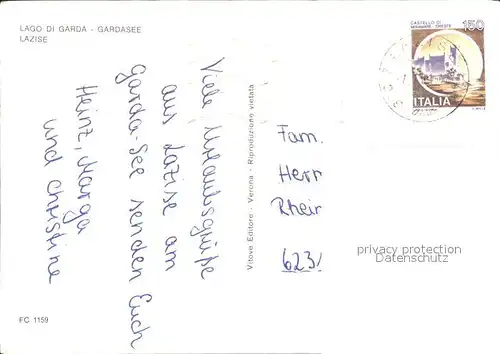 LAGO DI GARDA - GARDASEE
LAZISE
Viele Urlaubsgrüße
aus Lazise am
Garda-See senden Euch
Heinz, Marga
und Christine
Vitove Editore - Verona - Riproduzione vietata
CASTELLO DI
MIRAMARE - TRIESTE
150
ITALIA
Fam.
Herr
Rheir
623
privacy protection
Datenschutz
FC 1159